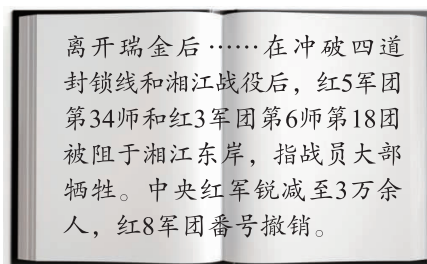 离开瑞金后……在冲破四道
封锁线和湘江战役后，红5军团
第34师和红3军团第6师第18团
被阻于湘江东岸，指战员大部
牺牲。中央红军锐减至3万余
人，红8军团番号撤销。